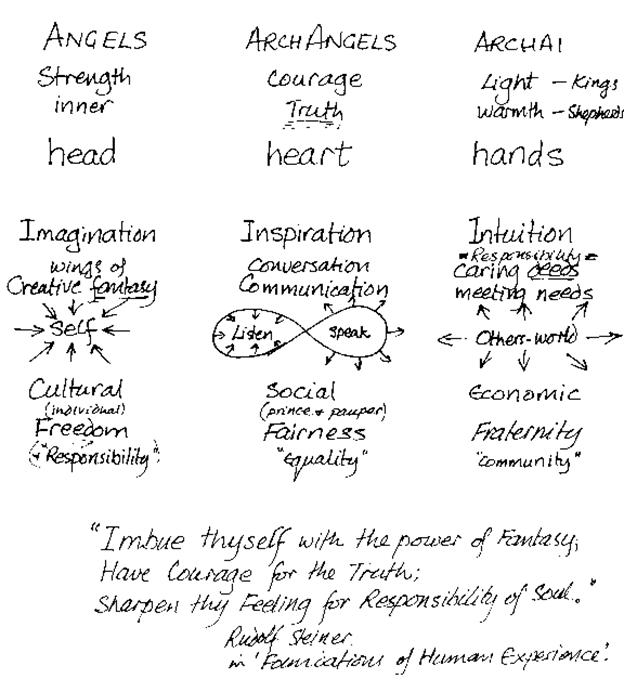 ANGELS
Strength
inner
head
ARCHANGELS
Courage
Truth
heart
ARCHAI
Light - Kings
Warmth - Shepherds
hands
Imagination
wings of
Creative fantasy
Self
Inspiration
Conversation
Communication
Listen
Speak
Intuition
= Responsibility =
caring deeds
meeting needs
Others-world
Cultural
(individual)
Freedom
(+ "Responsibility")
Social
(prince + pauper)
Fairness
"Equality"
Economic
Fraternity
"community"
"Imbue thyself with the power of Fantasy,
Have Courage for the Truth;
Sharpen thy Feeling for Responsibility of Soul."
Rudolf Steiner.
in 'Foundations of Human Experience'.